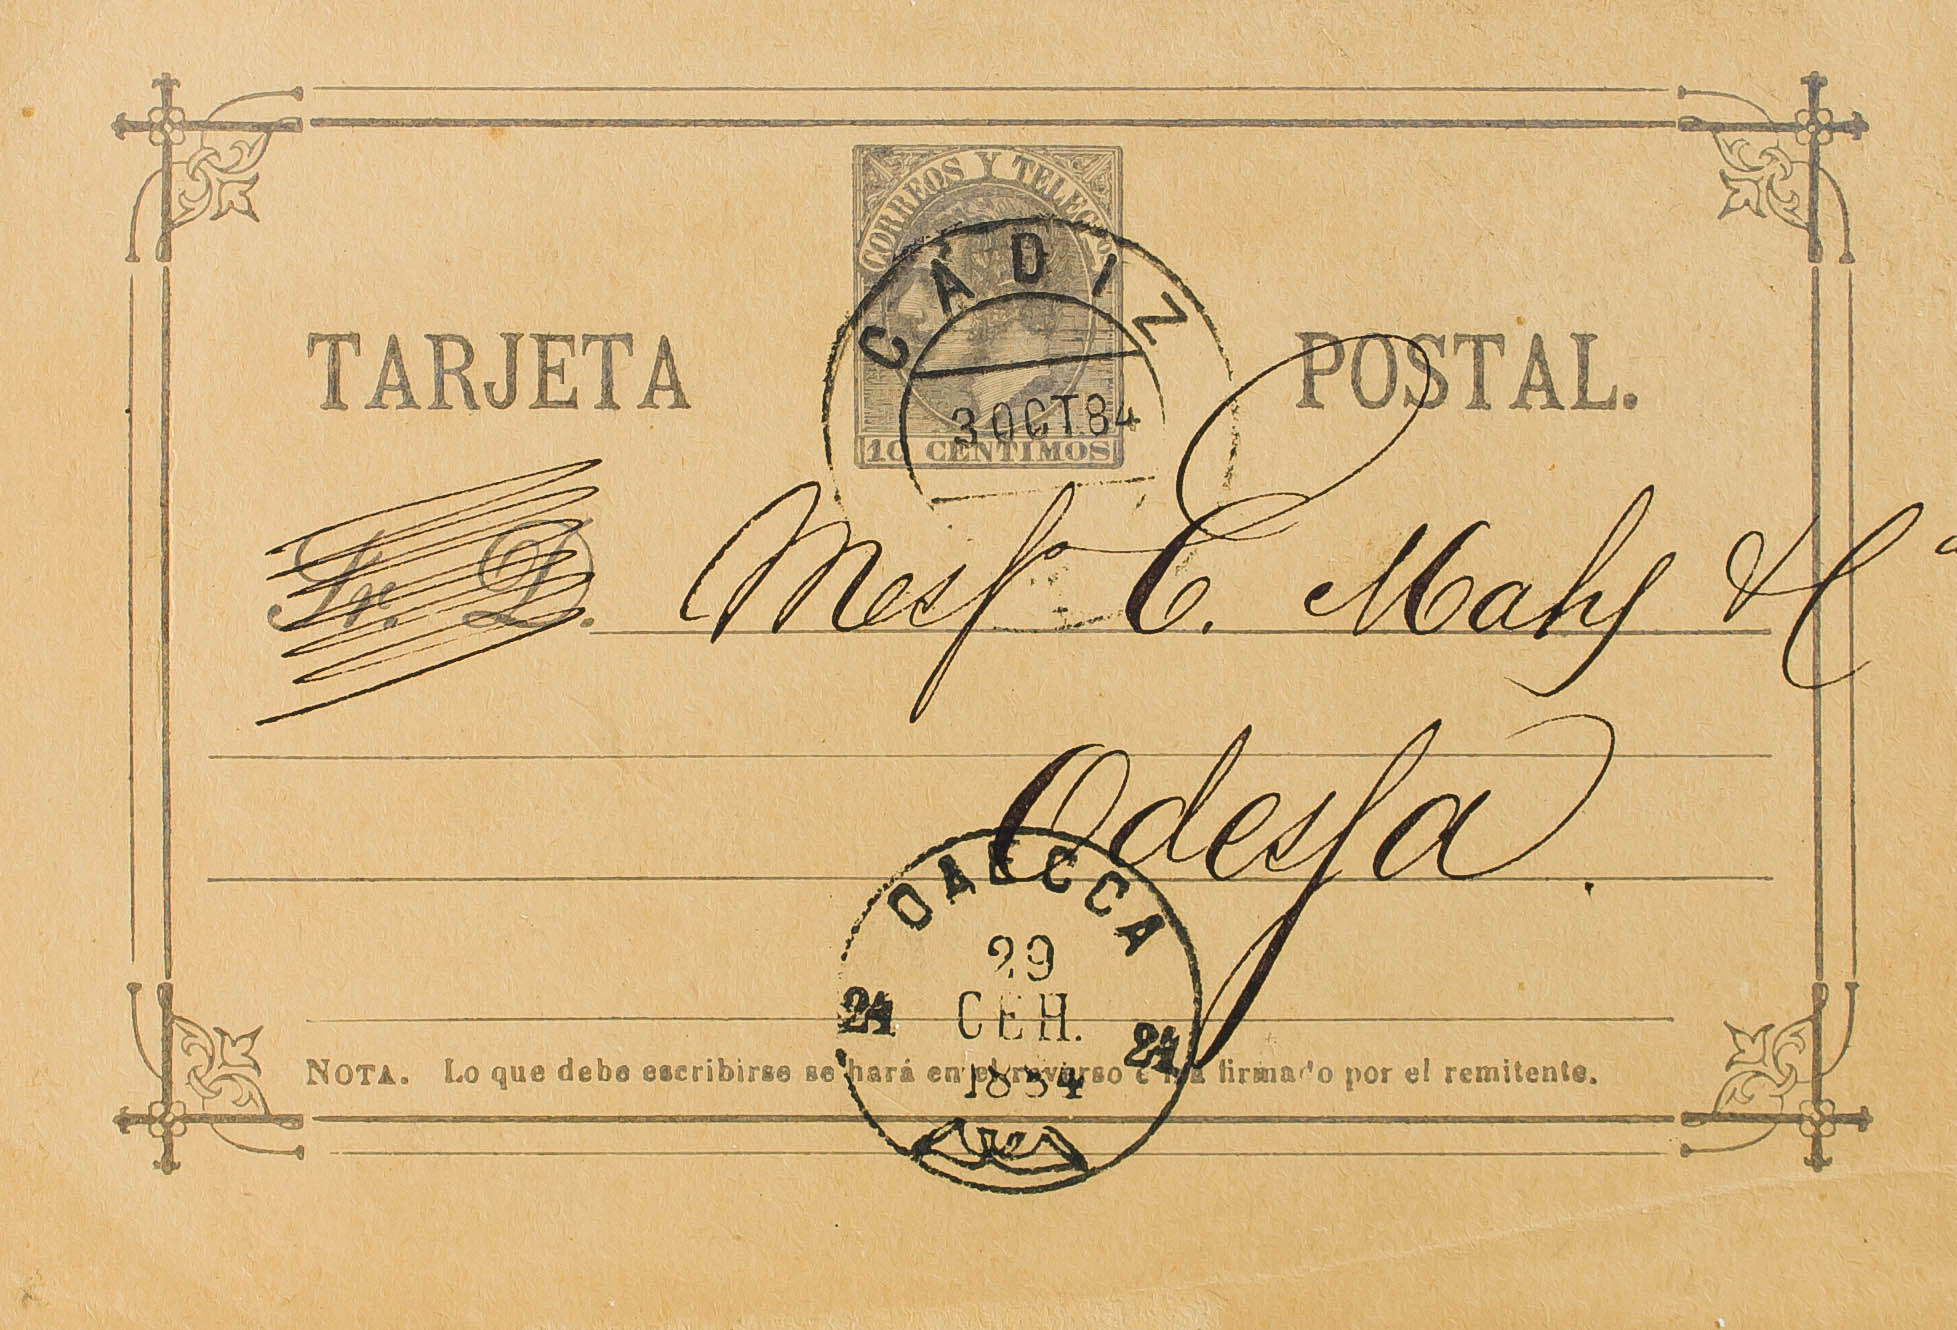 CORREOS Y TELEGFOS
CÁDIZ
3 OCT.84
10 CENTIMOS
TARJETA POSTAL.
Sr. D. Mess C. Mahs & Ca
Odessa.
ОДЕССА
29
СЕН.
1884
24 24
NOTA. Lo que debe escribirse se hará en el reverso é irá firmado por el remitente.